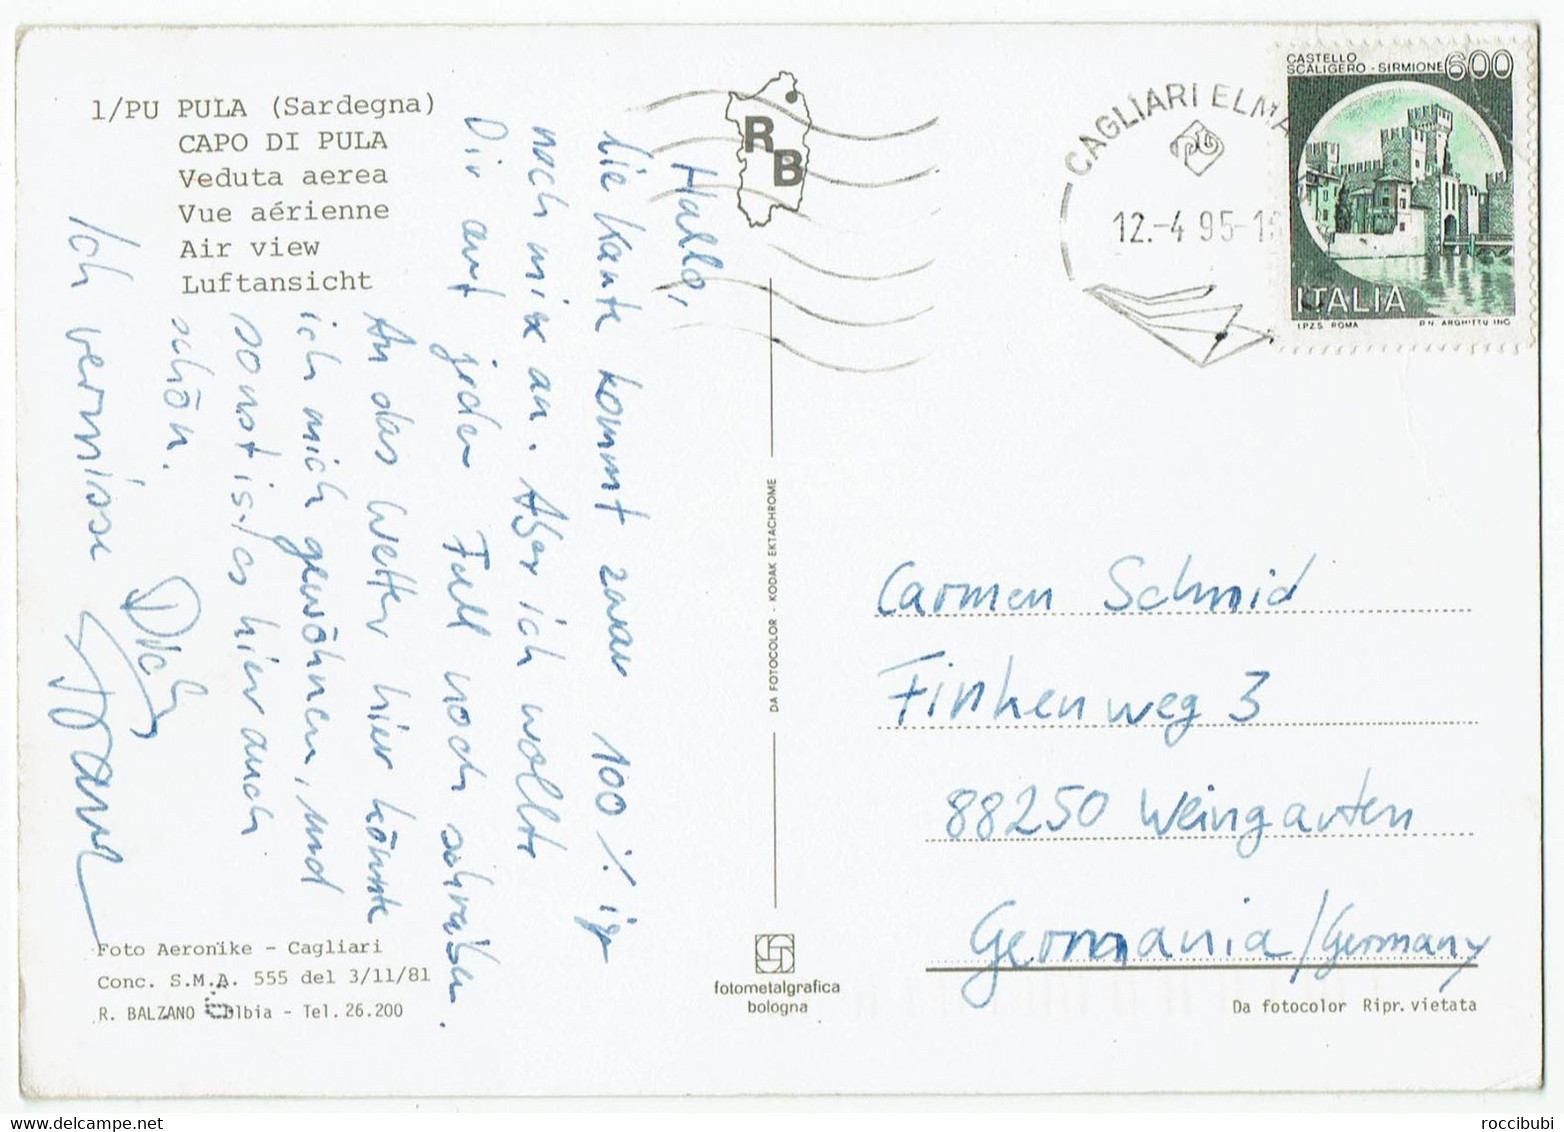 1/PU PULA (Sardegna)
CAPO DI PULA
Veduta aerea
Vue aérienne
Air view
Luftansicht
R
B
Hallo,
die Karte kommt zwar 100%ig
nach mir an. Aber ich wollte
Dir auf jeden Fall noch schreiben.
An das Wetter hier könnte
ich mich gewöhnen, und
sonst ist es hier auch
schön.
Ich vermisse Dich
Foto Aeronike - Cagliari
Conc. S.M.A. 555 del 3/11/81
R. BALZANO Olbia - Tel. 26.200
DA FOTOCOLOR - KODAK EKTACHROME
fotometalgrafica
bologna
CAGLIARI ELMA
12.-4 95-
CASTELLO
SCALIGERO - SIRMIONE 600
ITALIA
I.P.Z.S. ROMA P.N. ARGHITTU INC
Carmen Schmid
Finkenweg 3
88250 Weingarten
Germania/Germany
Da fotocolor Ripr. vietata
roccibubi